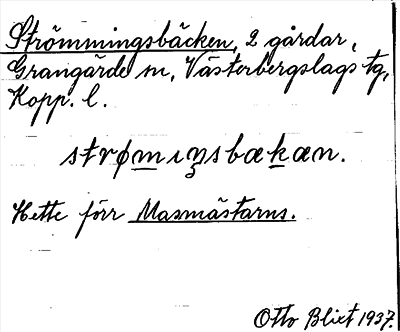 Strömmingsbäcken, 2 gårdar,
Grangärde sn, Västerbergslags tg,
Kopp. l.
strømıŋsbækæn.
Hette förr Masmästarns.
Otto Blixt 1937.